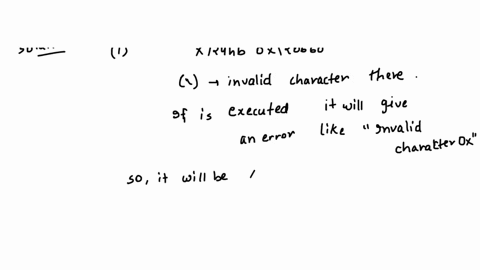 (1)
(x) → invalid character there .
If is executed it will give
an error like "Invalid
character 0x"
so, it will be